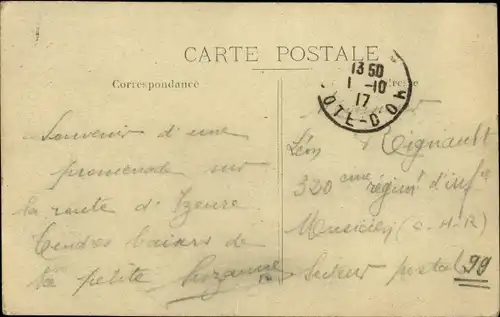 CARTE POSTALE
Correspondance
Souvenir d'une
promenade sur
la route d'Izeure
Tendres baisers de
ta petite Suzanne
13 50
1 -10
17
OTE-D'OR
Léon Rignault
320 eme régim d'infie
Musicien (C-H-R)
Secteur postal 99